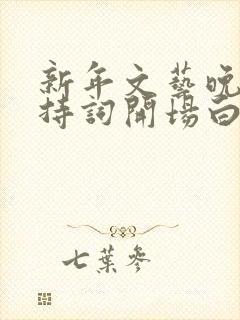 新年文藝晚
持詞開場白
七葉參